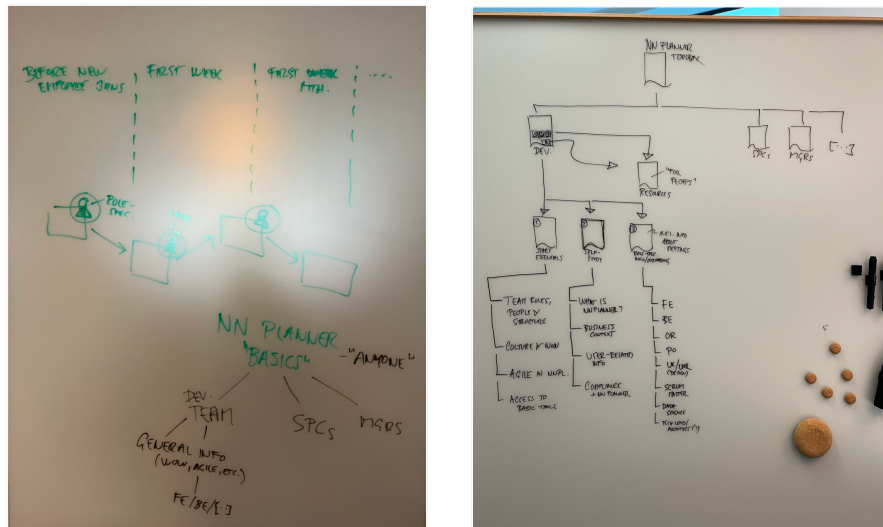 BEFORE NEW
EMPLOYEE JOINS
FIRST WEEK
FIRST
MTH.
.....
ROLE-
SPEC.
NN PLANNER
"BASICS"
- "ANYONE"
DEV.
TEAM
SPCs
MGRS
GENERAL INFO
(WOW, AGILE, ETC.)
FE/BE/[..]
NN PLANNER
TOOLBOX
DEV.
SPCs
MGRS
[...]
"FOR
RESOURCES
1
2
3
START
ESSENTIALS
SELF-
START
INCL. INFO
ABOUT
MEETINGS
TEAM ROLES,
PEOPLE &
STRUCTURE
CULTURE & WOW
AGILE IN NNPL.
ACCESS TO
BASIC TOOLS
WHAT IS
NN PLANNER?
BUSINESS
CONTEXT
USER-RELATED
INFO
COMPLIANCE
+ NN PLANNER
FE
BE
OR
PO
(DESIGN)
SCRUM
MASTER
DATA
SCIENCE
TECH LEAD/
ARCHITECT(?)